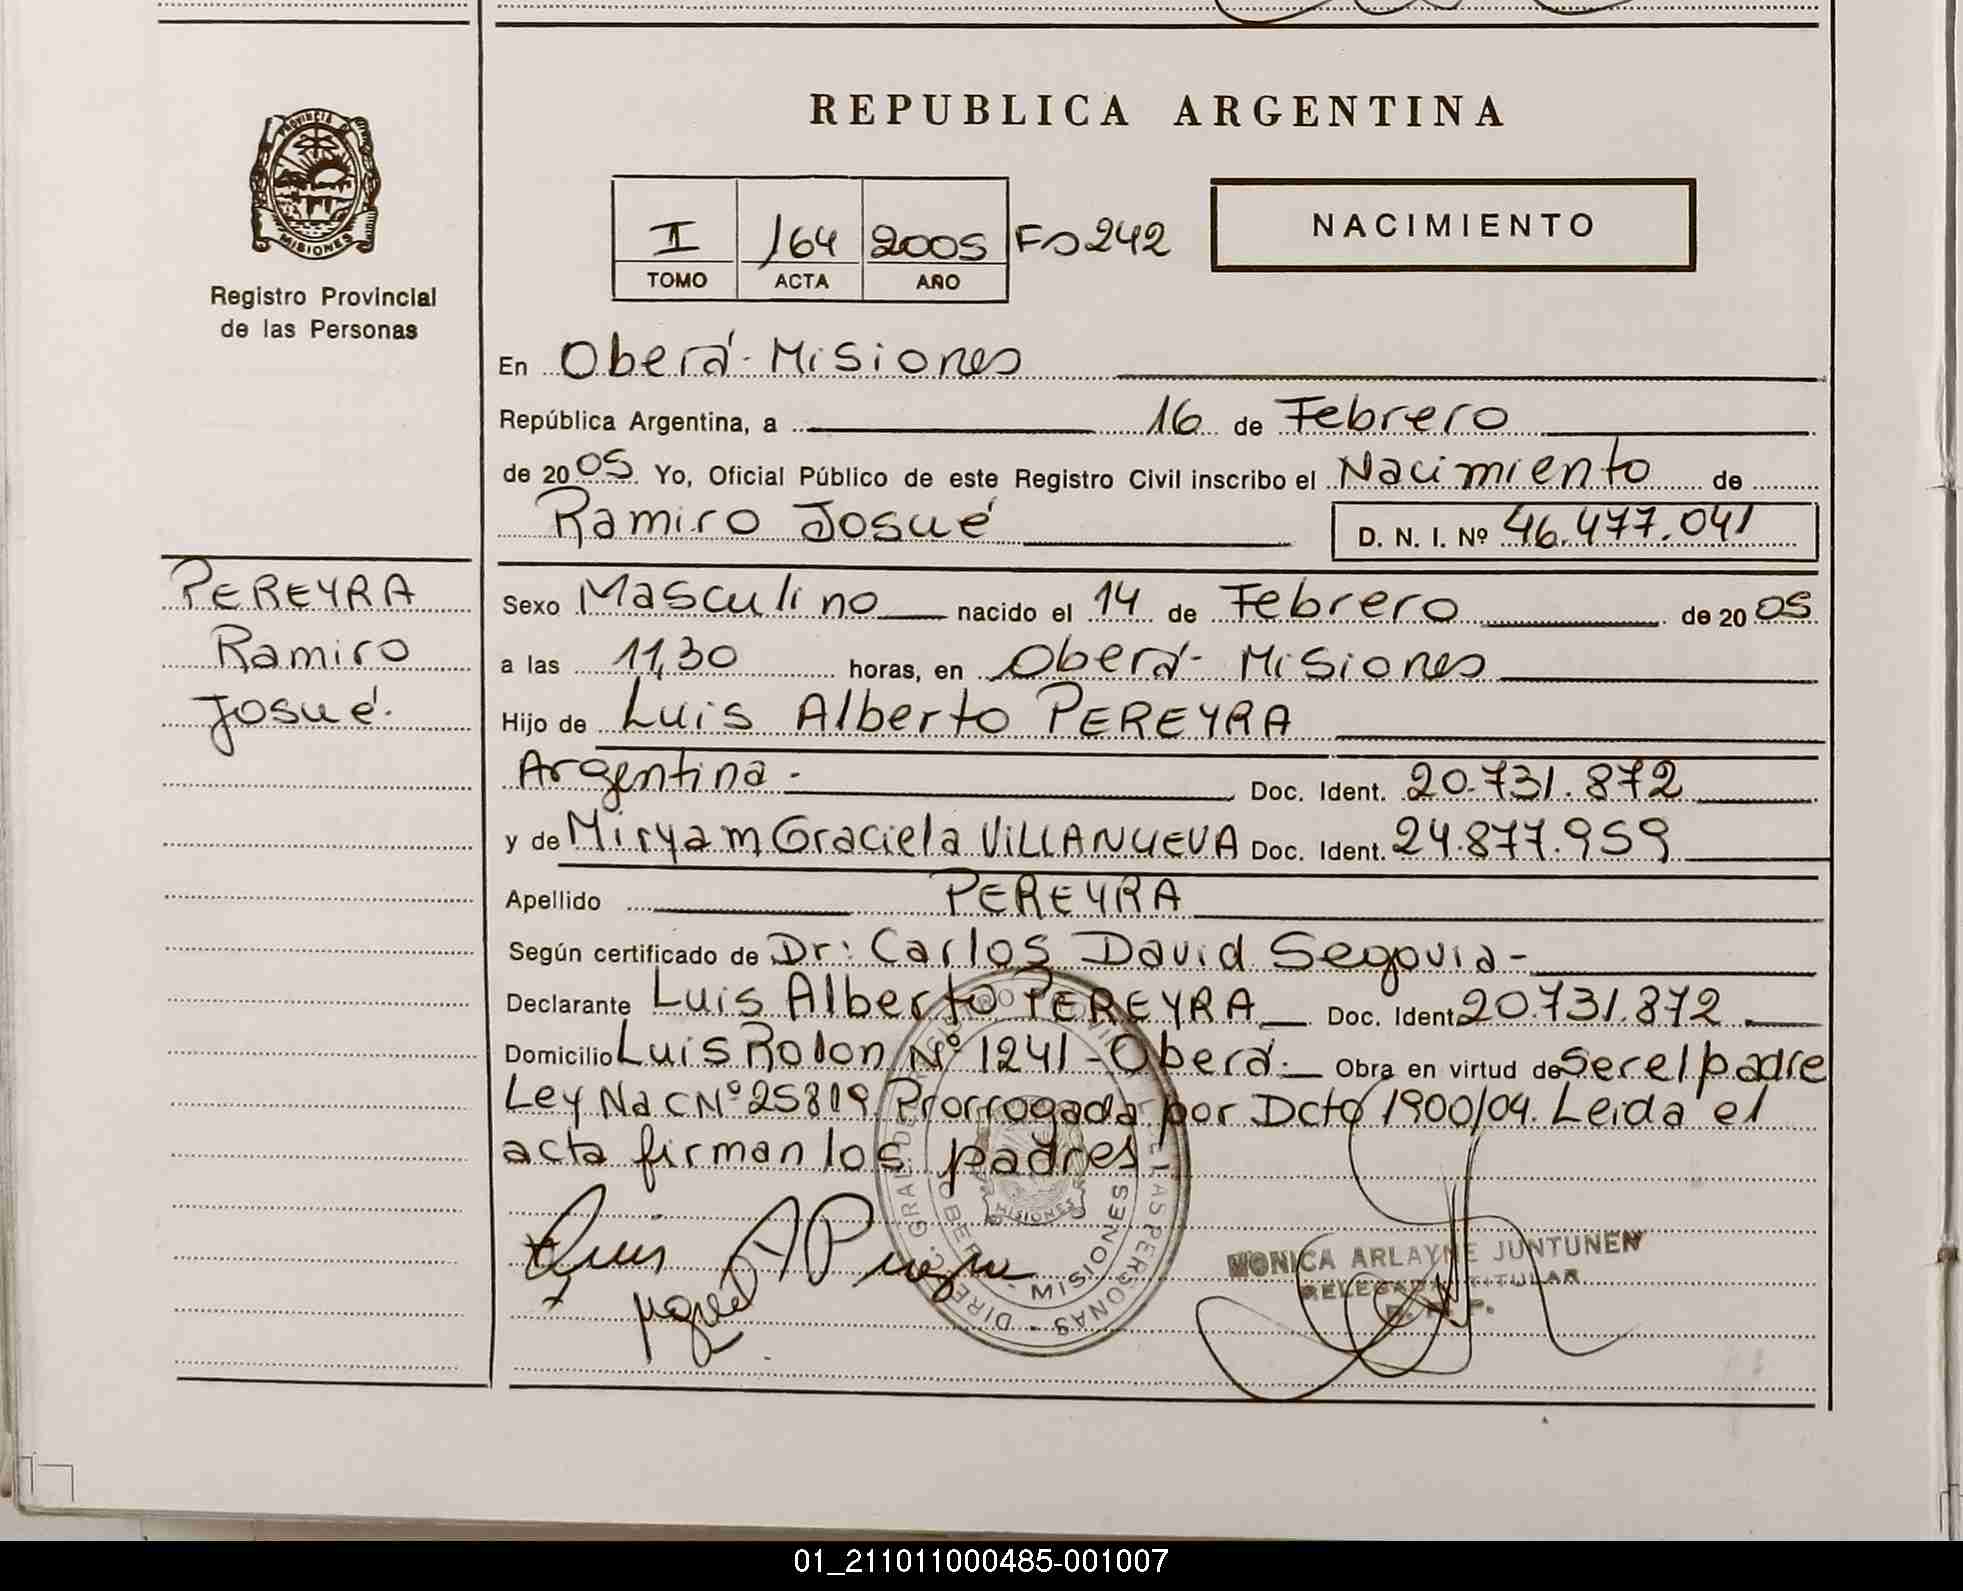 REPUBLICA ARGENTINA
PROVINCIA
MISIONES
Registro Provincial
de las Personas
I 164 2005 Fo 242
TOMO ACTA AÑO
NACIMIENTO
En Oberá - Misiones
República Argentina, a 16 de Febrero
de 2005 Yo, Oficial Público de este Registro Civil inscribo el Nacimiento de
Ramiro Josué D. N. I. Nº 46.477.041
PEREYRA
Ramiro
Josué.
Sexo Masculino nacido el 14 de Febrero de 2005
a las 11,30 horas, en Oberá - Misiones
Hijo de Luis Alberto PEREYRA
Argentina - Doc. Ident. 20.731.872
y de Miryam Graciela VILLANUEVA Doc. Ident. 24.877.959
Apellido PEREYRA
Según certificado de Dr: Carlos David Segovia -
Declarante Luis Alberto PEREYRA Doc. Ident. 20.731.872
Domicilio Luis Rolon Nº 1241 - Oberá. Obra en virtud de Ser el padre
Ley Nac Nº 25819 Prorrogada por Dcto 1900/04. Leida el
acta firman los padres.
MISIONES
OBERA - MISIONES
MONICA ARLAYNE JUNTUNEN
DELEGADA TITULAR
01_211011000485-001007